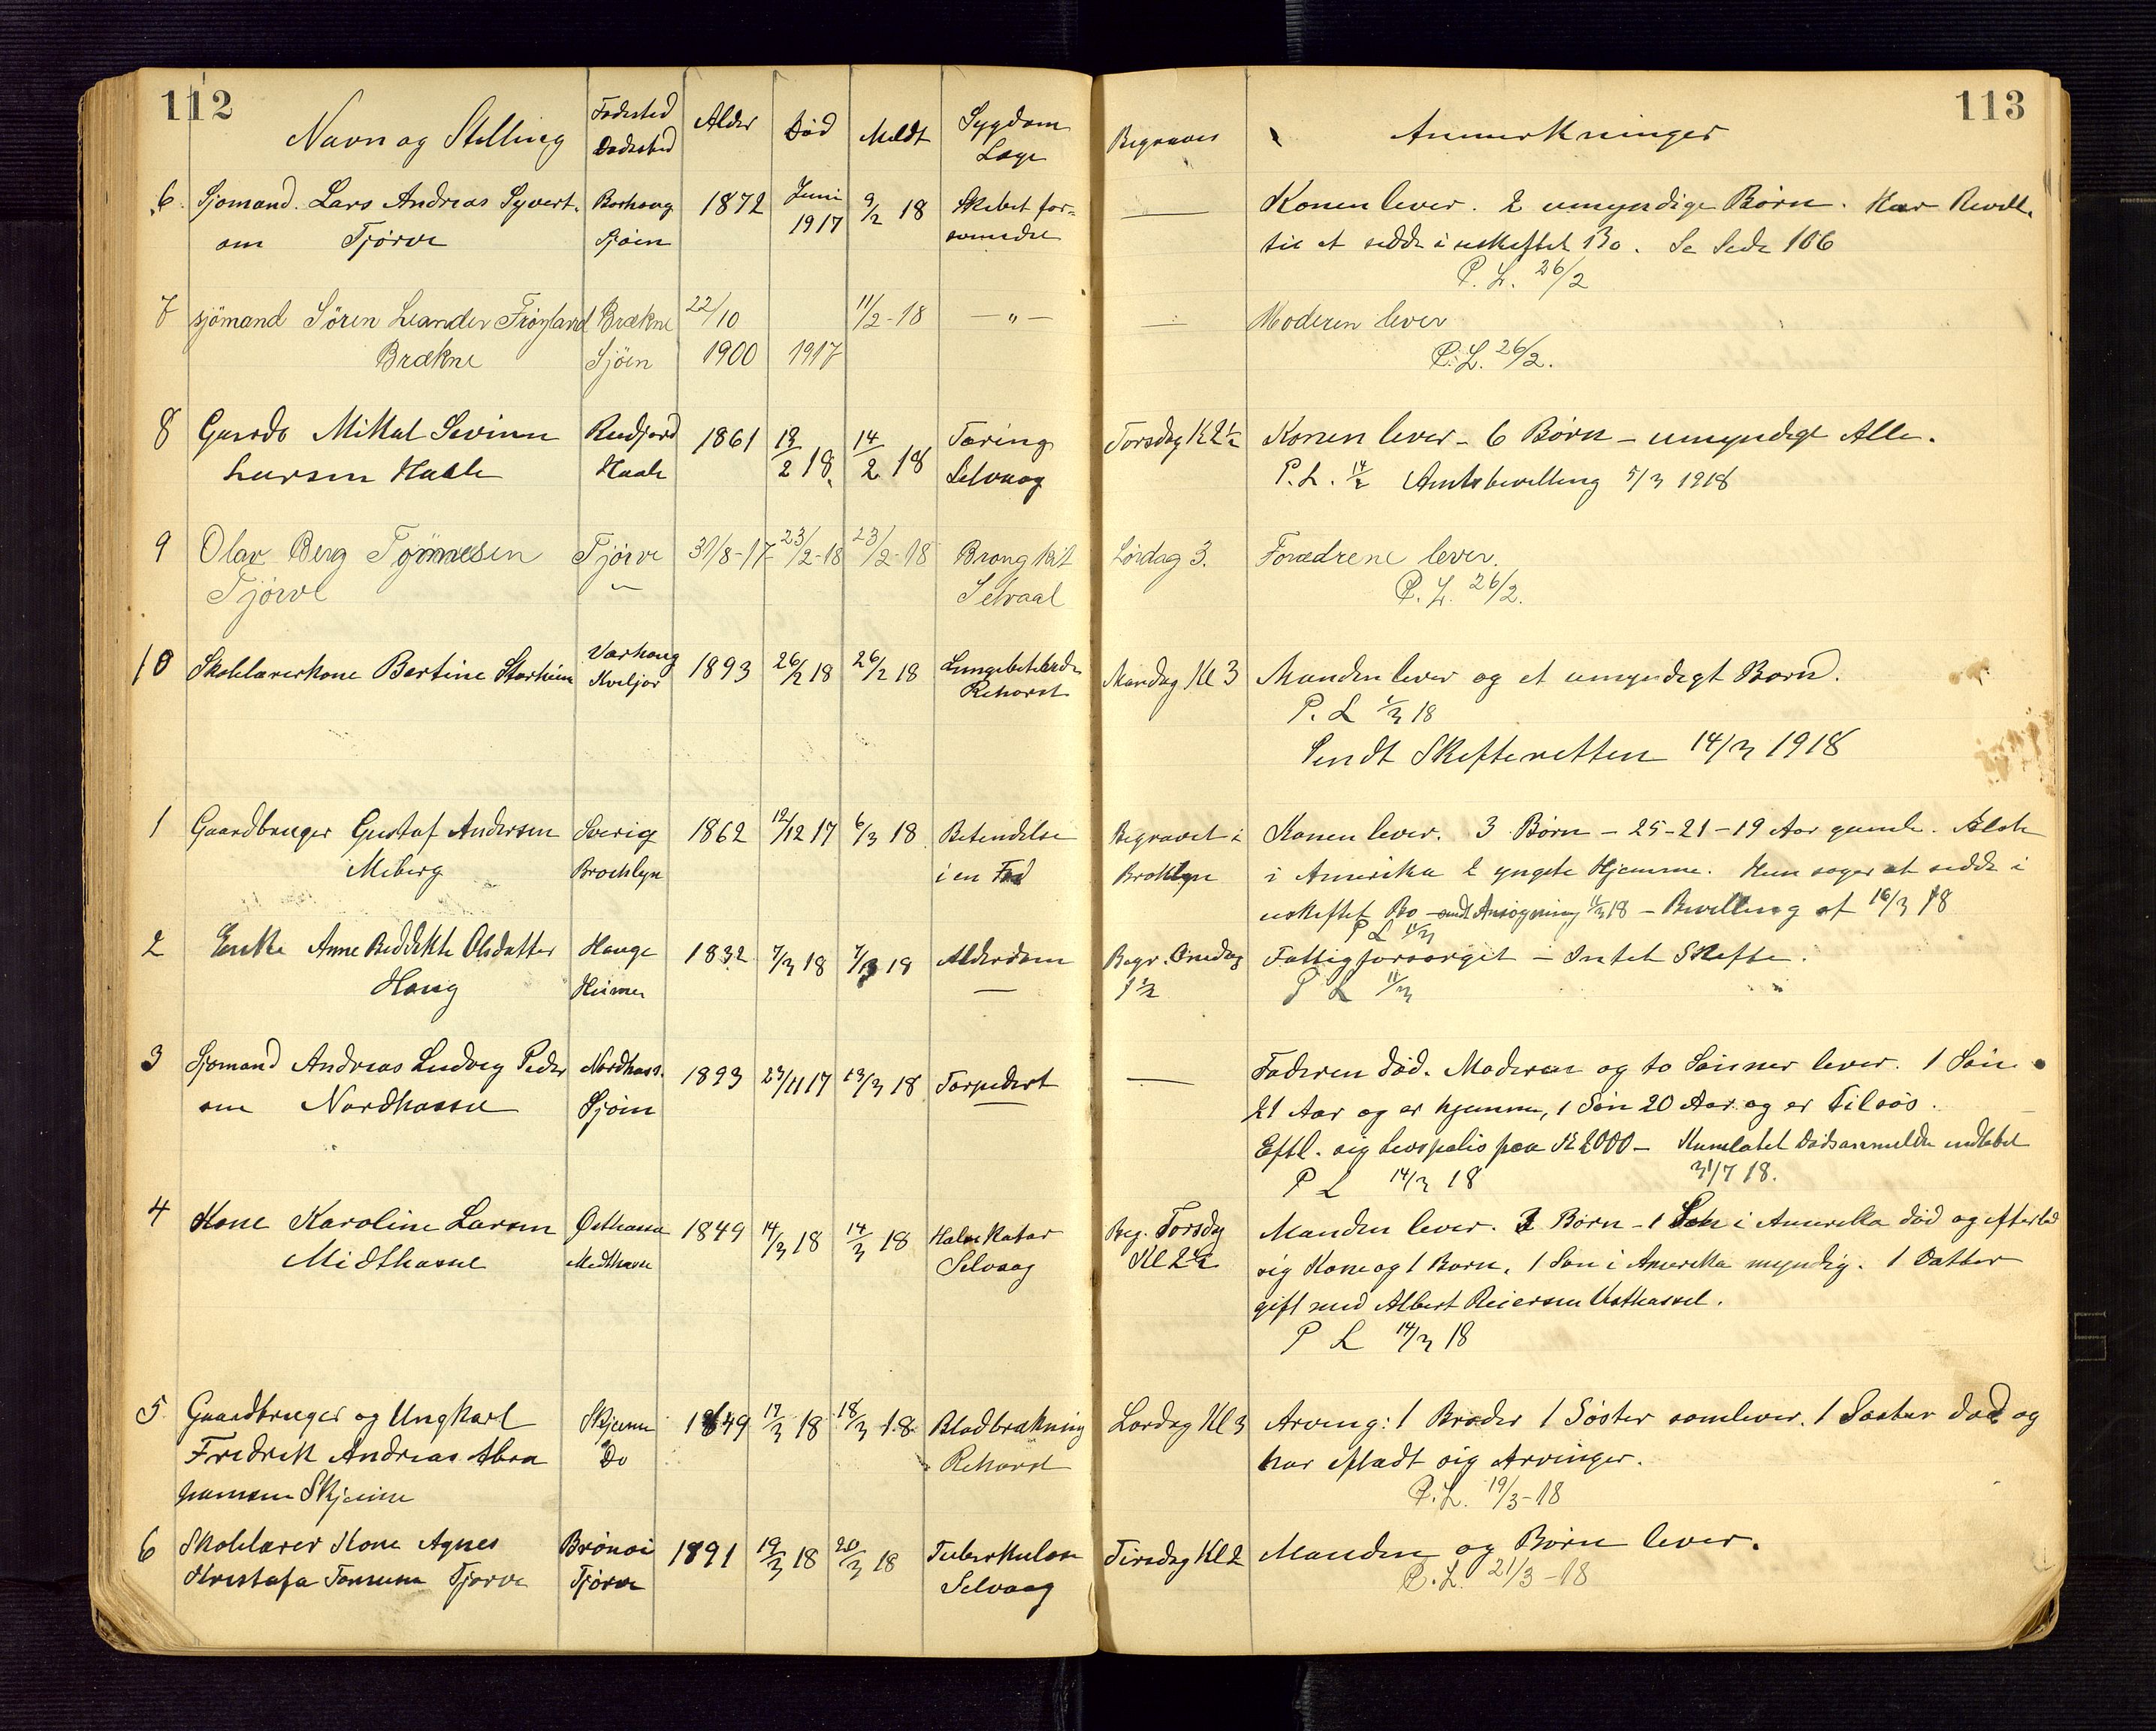 112
Navn og Stilling Fødested Dødssted Alder Død Meldt Sygdom Læge
6 Sjømand Lars Andreas Syvert- Borhaug 1872 Juni 9/2 18 Skibet for-
sen Tjørve Sjøen 1917 svundet
7 sjömand Sören Leander Frøyland Brækne 22/10 11/2-18 — „ —
Brækne Sjöen 1900 1917
8 Gaardb Mikal Severin Rudjord 1861 13/2 18. 14/2 18 Tæring
Larsen Haale Haale Selvaag
9 Olav Berg Tønnesen Tjörve 31/8-17 23/2-18 23/2-18 Bronghit
Tjörve Selvaal
10 Skolelærerkone Bertine Storheim Varhaug 1893 26/2 18 26/2 18 Lungebetændelse
Kviljor Rehorst
1 Gaardbruger Gustaf Andersen Sverig 1862 12/12 17 6/3 18 Betendelse
Miberg Brocklyn i en Fod
2 Enke Anne Bedikte Olsdatter Hauge 1832 7/3 18 7/3 18 Alderdom
Haug Heimer —
3 Sjomand Andreas Ludvig Peder Nordhass. 1893 23/11 17 13/3 18 Torpedert
sen Nordhassel Sjøin
4 Kone Karoline Larsen Østhassel 1849 14/3 18 14/3 18 Halskatar
Midthassel Midthassel Selvaag
5 Gaardbruger og Ungkarl Skjeime 1849 17/3 18 18/3 18 Blodbrækning
Fredrik Andreas Abra Do Rehorst
hamsen Skjeime
6 Skolelærer Kone Agnes Brönöi 1891 19/3 18 20/3 18 Tuberkulose
Kristofa Tønnesen Tjørve Tjørve Selvaag
113
Begraves Anmerkninger
— Konen lever. 2 umyndige Børn. Har Bevill.
til at sidde i uskiftet Bo. Se Side 106
P. L. 26/2
— Moderen lever
P. L. 26/2.
Torsdag Kl 2 1/2 Konen lever - 6 Børn - umyndige Alle.
P. L. 14/2 Amtsbevilling 5/3 1918
Lördag 3. Forædrene lever.
P. L. 26/2.
Mandag Kl 3 Manden lever og et umyndigt Barn.
P. L 1/3 18
Sendt Skifteretten 14/3 1918
Begravet i Konen lever. 3 Børn - 25-21-19 Aar gamle. Ælste
Broklyn i Amerika 2 yngste Hjemme. Hun søger at sidde i
uskiftet Bo - sendt Ansøgning 8/3 18 - Bevilling af 16/3 18
P L 11/3
Begr. Onsdag Fattigforsørget - Intet Skifte.
1 1/2 P L 11/3
— Faderen død. Moderen og to Sønner lever. 1 Søn
21 Aar og er hjemme, 1 Søn 20 Aar og er Tilsös.
Eftl. sig Livspolis paa Kr 2000 - Dødsanmeldn
P L 14/3 18 31/7 18.
Beg. Torsdag Manden lever. 3 Børn - 1 Søn i Amerika død og efterlod
Kl 2 1/2 sig Kone og 1 Barn. 1 Søn i Amerika myndig. 1 Datter
gift med Albert Reiersen Vesthassel.
P L 14/3 18
Lørdag Kl 3 Arving: 1 Broder 1 Søster som lever. 1 Søster død og
har efladt sig Arvinger.
P. L. 19/3-18
Tirsdag Kl 2 Manden og Børn lever.
P. L. 21/3-18